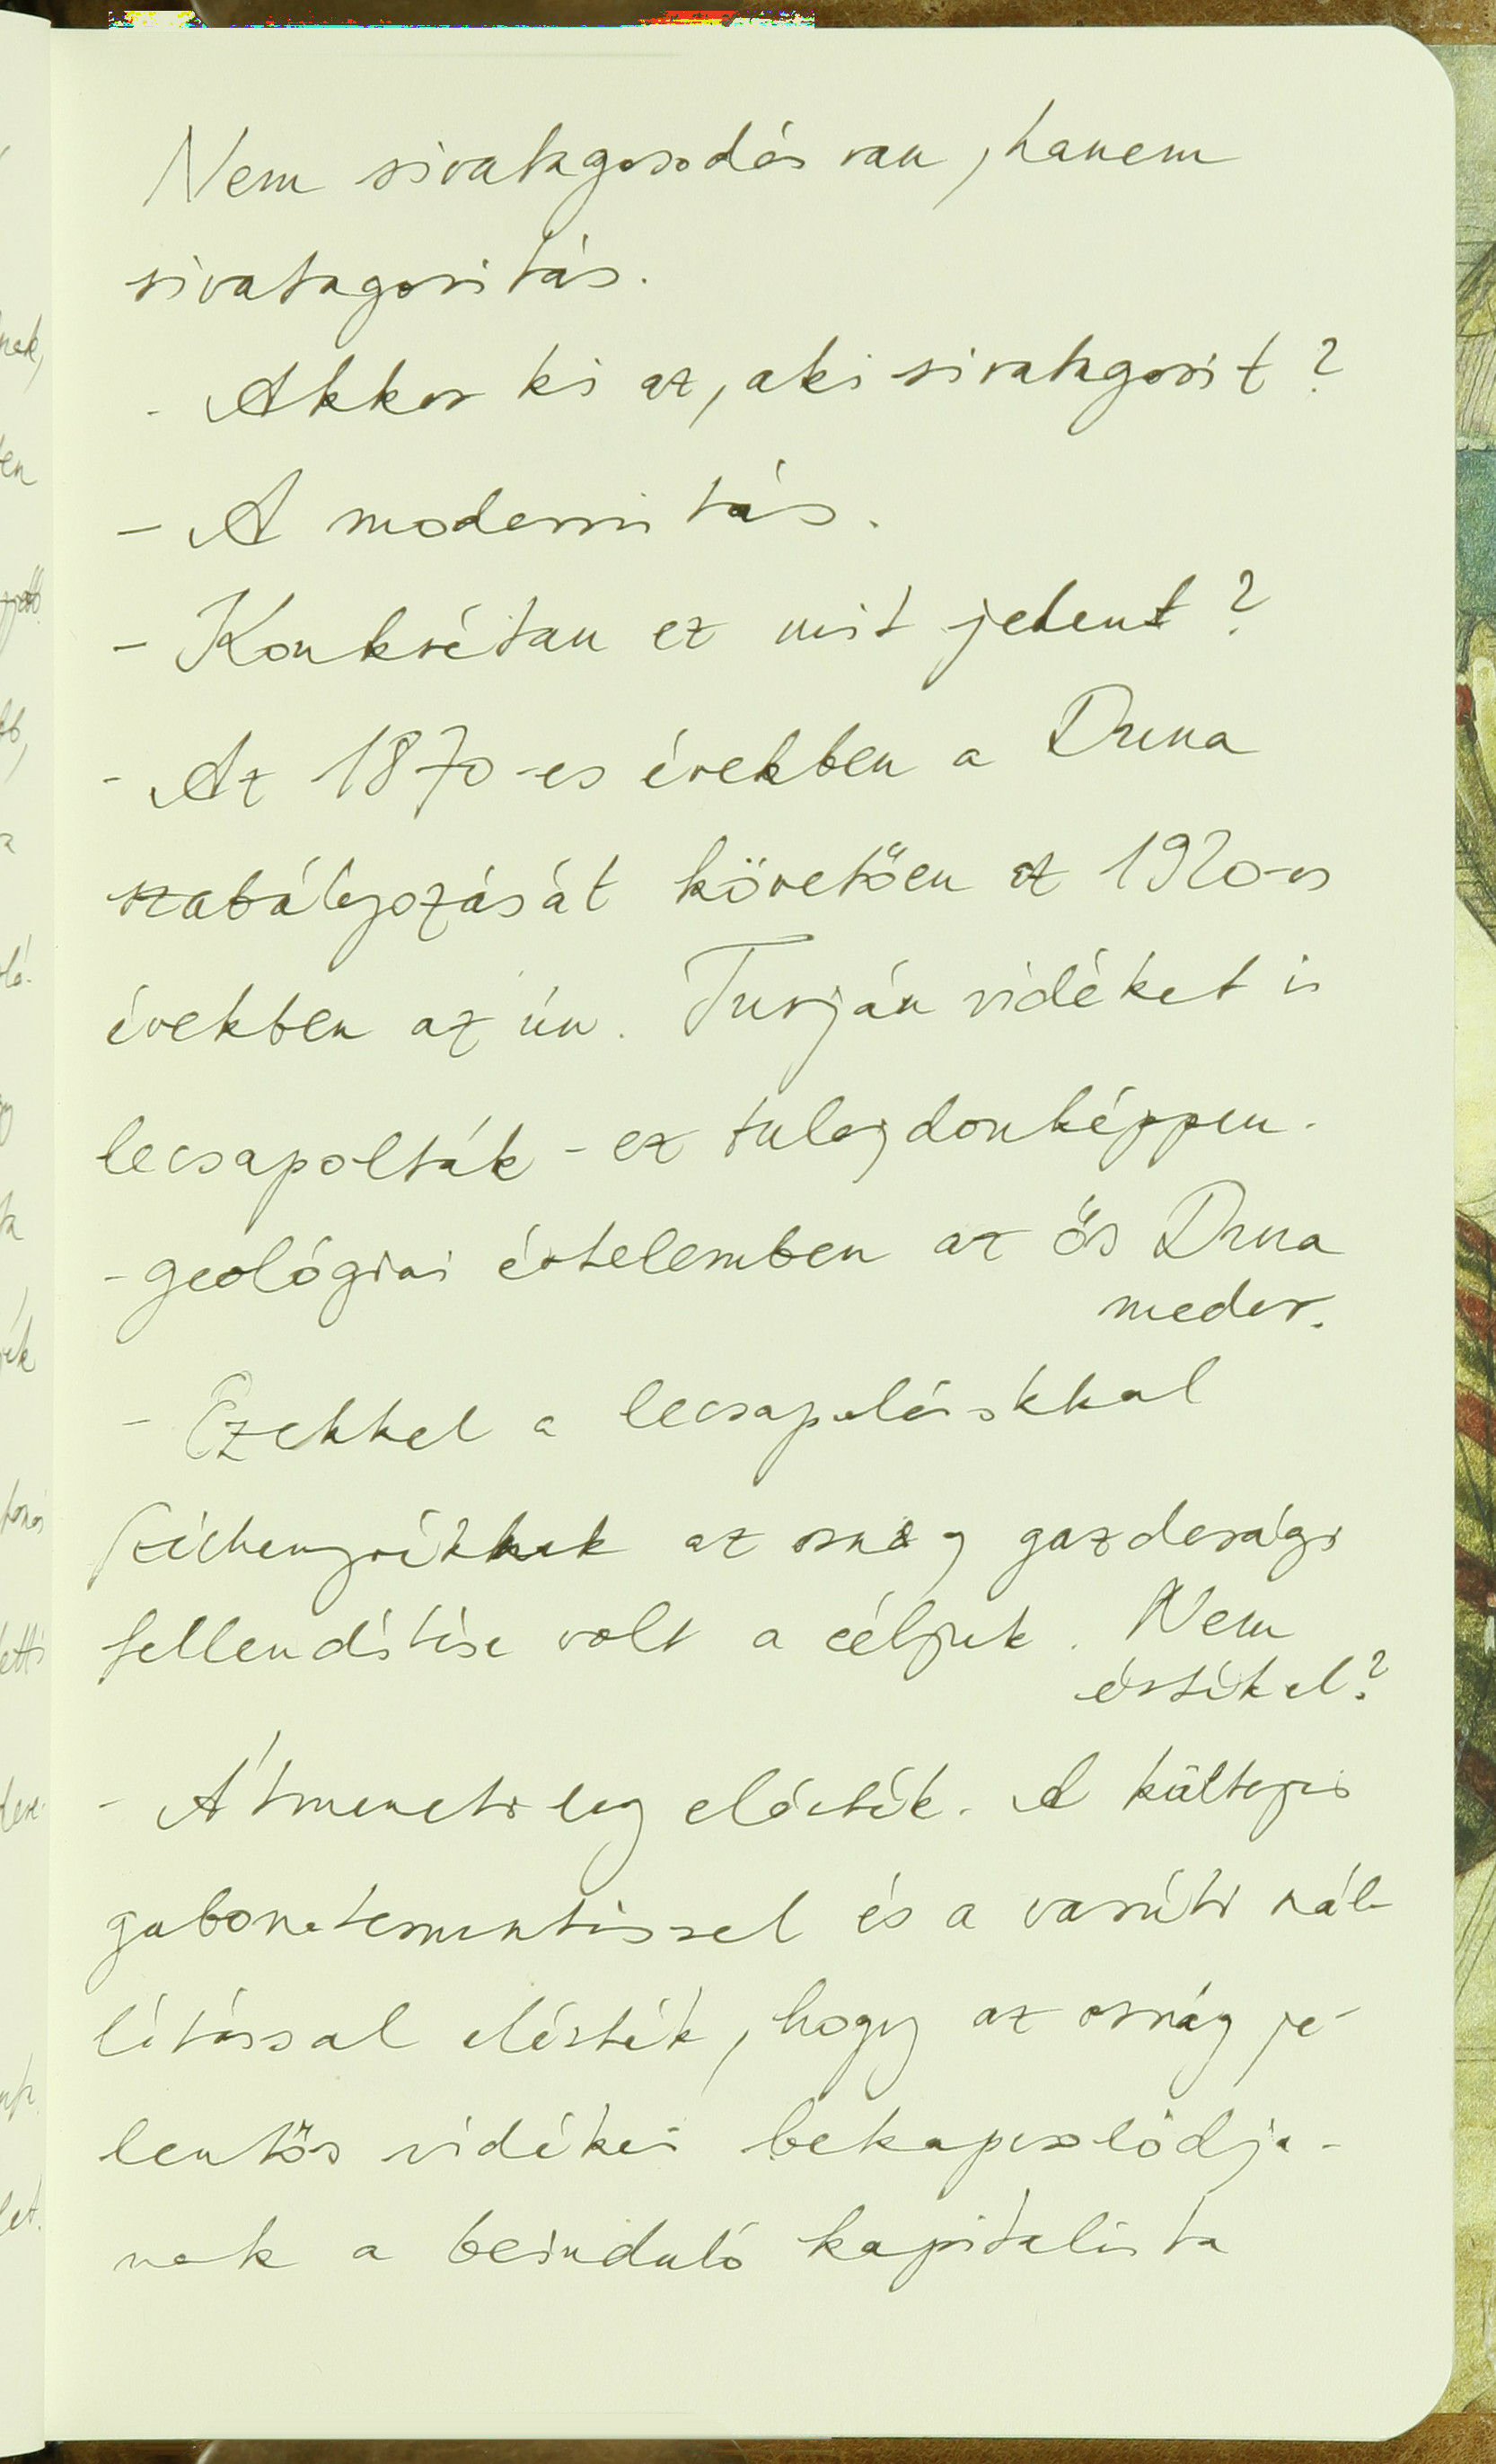 Nem sivatagosodás van, hanem
sivatagosítás.
- Akkor ki az, aki sivatagosit?
- A modernitás.
- Konkrétan ez mit jelent?
- Az 1870-es években a Duna
szabályozását követően az 1920-es
években az ún. Turján vidéket is
lecsapolták - ez tulajdonképpen.
- geológiai értelemben az ős Duna
meder.
- Ezekkel a lecsapolásokkal
Széchenyiéknek az ország gazdasági
fellendítése volt a céljuk. Nem
érték el?
- Átmenetileg elérték. A kültejes
gabonatermesztéssel és a vasúti szál-
lítással elérték, hogy az ország je-
lentős vidékei bekapcsolódja-
nak a beinduló kapitalista